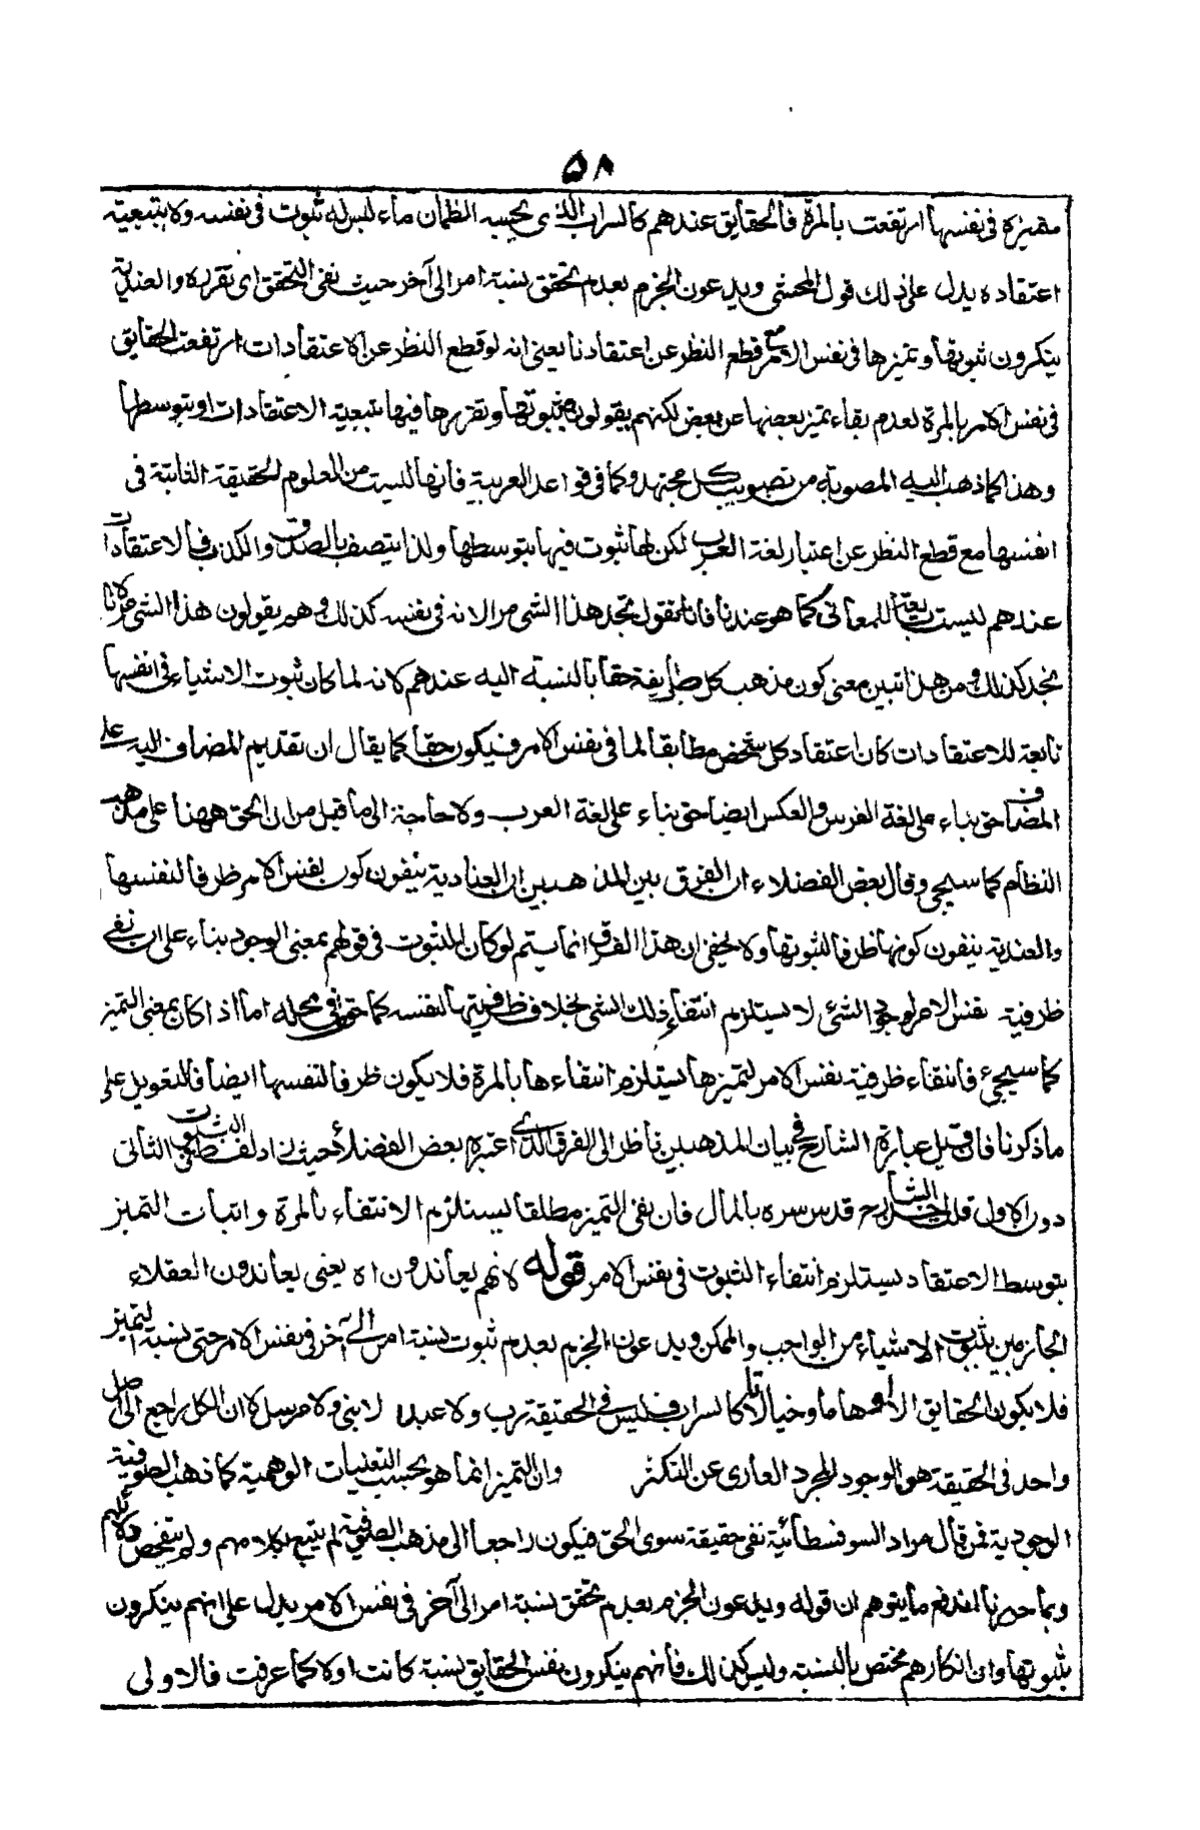 ٥٨
متميزة في نفسها ارتفعت بالمرة فالحقايق عندهم كالسراب الذي يحسبه الظمآن ماء ليس له ثبوت في نفسه ولا بتبعية
اعتقاده يدل على ذلك قول المحشي ويدعون الجزم بعدم تحقق نسبة امر الى آخر حيث نفى التحقق اي تقرره والعندية
ينكرون ثبوتها وتميزها في نفس الامر مع قطع النظر عن اعتقادنا يعني انه لو قطع النظر عن الاعتقادات ارتفعت الحقايق
في نفس الامر بالمرة لعدم بقاء تميز بعضها عن بعض لكنهم يقولون بثبوتها وتقررها فيها بتبعية الاعتقادات او بتوسطها
وهذا كما ذهب اليه المصوبة من تصويب كل مجتهد وكما في قواعد العربية فانها ليست من العلوم الحقيقة الثابتة في
انفسها مع قطع النظر عن اعتبار لغة العرب لكن لها ثبوت فيها بتوسطها ولذا يتصف بالصدق والكذب فالاعتقادات
عندهم ليست تابعة للمعاني كما هو عندنا فانا نقول نجد هذا الشئ مرا لانه في نفسه كذلك وهم يقولون هذا الشئ مر لانا
نجد كذلك ومن هذا تبين معنى كون مذهب كل طايفة حقا بالنسبة اليه عندهم لانه لما كان ثبوت الاشياء في انفسها
تابعة للاعتقادات كان اعتقاد كل شخص مطابقا لما في نفس الامر فيكون حقا كما يقال ان تقديم المضاف اليه على
المضاف حق بناء على لغة الفرس والعكس ايضا حق بناء على لغة العرب ولا حاجة الى ما قيل من ان الحق ههنا على مذهب
النظام كما سيجئ وقال بعض الفضلاء ان الفرق بين المذهبين ان العنادية ينفون كون نفس الامر ظرفا لنفسها
والعندية ينفون كونها ظرفا لثبوتها ولا يخفى ان هذا الفرق انما يتم لو كان الثبوت في قولهم بمعنى الوجود بناء على ان نفي
ظرفية نفس الامر لوجود الشئ لا يستلزم انتفاء ذلك الشئ بخلاف ظرفيتها لنفسه كما حقق في محله اما اذا كان بمعنى التميز
كما سيجئ فانتفاء ظرفية نفس الامر لتميزها يستلزم انتفاءها بالمرة فلا يكون ظرفا لنفسها ايضا فالتعويل على
ما ذكرنا فان قيل عبارة الشارح في بيان المذهبين ناظر الى الفرق الذي اعتبره بعض الفضلاء حيث زاد لفظ الثبوت في الثاني
دون الاول قلت اخذ الشارح قدس سره بالمآل فان نفي التميز مطلقا يستلزم الانتفاء بالمرة واثبات التميز
بتوسط الاعتقاد يستلزم انتفاء الثبوت في نفس الامر قوله لانهم يعاندون اه يعني يعاندون العقلاء
الجازمين بثبوت الاشياء من الواجب والممكن ويدعون الجزم بعدم ثبوت نسبة امر الى آخر في نفس الامر حتى نسبة التميز
فلا يكون الحقايق الا اوهاما وخيالات كالسراب فليس في الحقيقة رب ولا عبد لا نبي ولا مرسل لان الكل راجع الى اصل
واحد في الحقيقة هو الوجود المجرد العاري عن التكثر وان التميز انما هو بحسب التعينات الوهمية كما ذهب الصوفية
الوجودية فمن قال مراد السوفسطائية نفي حقيقة سوى الحق فيكون راجعا الى مذهب الصوفية لم يتبع كلامهم ولم يتفحص
وبما حررنا اندفع ما يتوهم ان قوله ويدعون الجزم بعدم تحقق نسبة امر الى آخر في نفس الامر يدل على انهم ينكرون
ثبوتها وان انكارهم مختص بالنسبة وليس كذلك فانهم ينكرون نفس الحقايق نسبة كانت او لا كما عرفت فالاولى